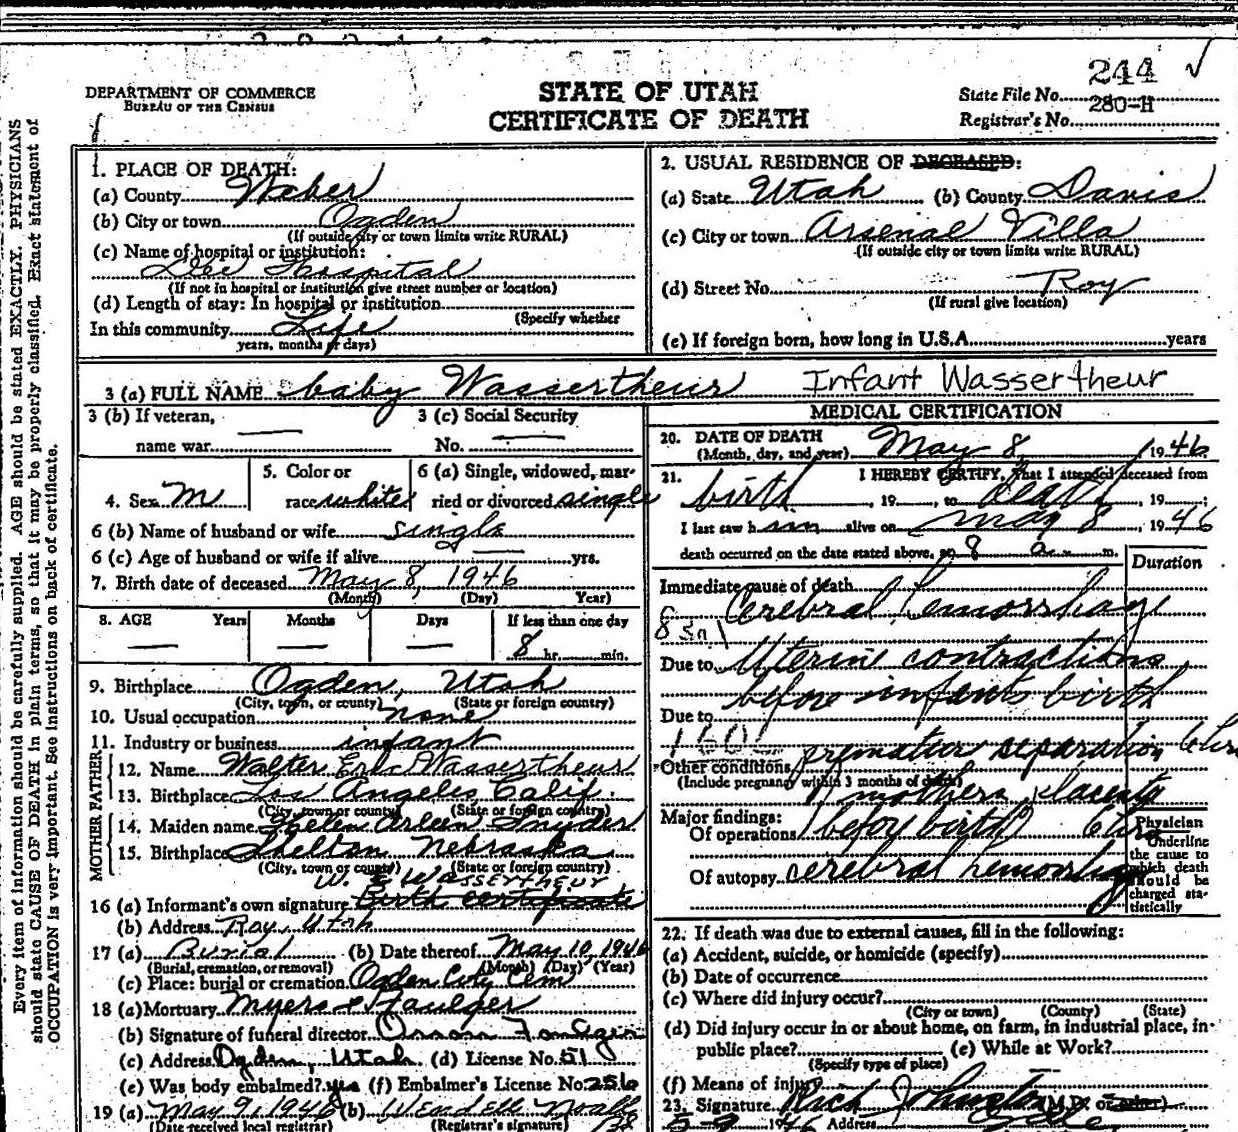 244 ✓
DEPARTMENT OF COMMERCE
BUREAU OF THE CENSUS
STATE OF UTAH
CERTIFICATE OF DEATH
State File No. 280-H
Registrar's No.
Every item of information should be carefully supplied. AGE should be stated EXACTLY. PHYSICIANS
should state CAUSE OF DEATH in plain terms, so that it may be properly classified. Exact statement of
OCCUPATION is very important. See instructions on back of certificate.
1. PLACE OF DEATH:
(a) County Weber
(b) City or town Ogden
(If outside city or town limits write RURAL)
(c) Name of hospital or institution:
Dee Hospital
(If not in hospital or institution give street number or location)
(d) Length of stay: In hospital or institution
(Specify whether
In this community Life
years, months or days)
2. USUAL RESIDENCE OF DECEASED:
(a) State Utah (b) County Davis
(c) City or town Arsenal Villa
(If outside city or town limits write RURAL)
(d) Street No. Roy
(If rural give location)
(e) If foreign born, how long in U.S.A. years
3 (a) FULL NAME baby Wassertheur Infant Wassertheur
3 (b) If veteran, name war
3 (c) Social Security No.
4. Sex M
5. Color or race white
6 (a) Single, widowed, married or divorced single
6 (b) Name of husband or wife single
6 (c) Age of husband or wife if alive yrs.
7. Birth date of deceased May 8, 1946
(Month) (Day) Year)
8. AGE Years Months Days If less than one day
8 hr. min.
9. Birthplace Ogden, Utah
(City, town, or county) (State or foreign country)
10. Usual occupation none
11. Industry or business infant
FATHER
12. Name Walter Eric Wassertheur
13. Birthplace Los Angeles Calif.
(City, town or county) (State or foreign country)
MOTHER
14. Maiden name Helen Arleen Snyder
15. Birthplace Shelton Nebraska
(City, town or county) (State or foreign country)
W. E. WASSERTHEUR
16 (a) Informant's own signature Birth certificate
(b) Address Roy, Utah
17 (a) Burial (b) Date thereof May 10, 1946
(Burial, cremation, or removal) (Month) (Day) (Year)
(c) Place: burial or cremation Ogden City Cem
18 (a) Mortuary Myers & Foulger
(b) Signature of funeral director
(c) Address Ogden, Utah (d) License No. 51
(e) Was body embalmed? yes (f) Embalmer's License No: 256
19 (a) May 9, 1946 (b) Wendell Noall
(Date received local registrar) (Registrar's signature)
MEDICAL CERTIFICATION
20. DATE OF DEATH May 8, 1946
(Month, day, and year)
21. I HEREBY CERTIFY, That I attended deceased from
birth, 19, to death, 19;
I last saw h im alive on May 8, 1946
death occurred on the date stated above, at 8 a. m.
Duration
Immediate cause of death
Cerebral hemorrhage
Due to Uterine contractions
before infants birth
Due to
premature separation 6 hrs
Other conditions
(Include pregnancy within 3 months of death)
of mothers placenta
Major findings:
Of operations (before birth) 6 hrs
Of autopsy cerebral hemorrhage
Physician
Underline
the cause to
which death
should be
charged sta-
tistically
22. If death was due to external causes, fill in the following:
(a) Accident, suicide, or homicide (specify)
(b) Date of occurrence
(c) Where did injury occur?
(City or town) (County) (State)
(d) Did injury occur in or about home, on farm, in industrial place, in
public place? (e) While at Work?
(Specify type of place)
(f) Means of injury
23. Signature Rich Johnston (M.D. or other)
5-9 1946 Address